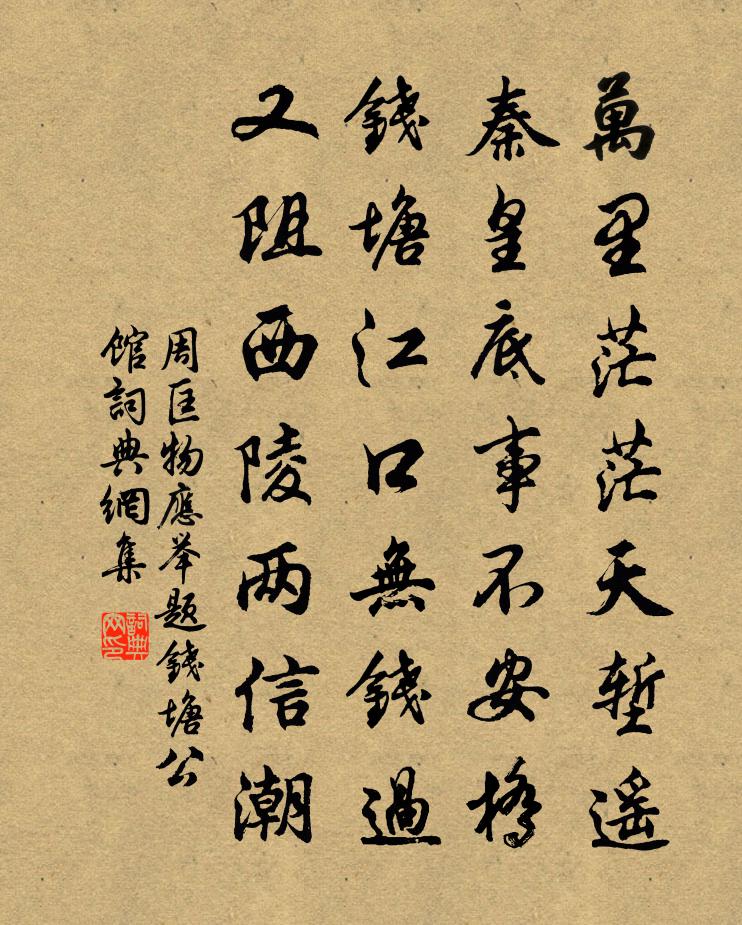 萬里茫茫天塹遥
秦皇底事不安橋
錢塘江口無錢過
又阻西陵两信潮
周匡物應举题錢塘公
館詞典網集
詞典